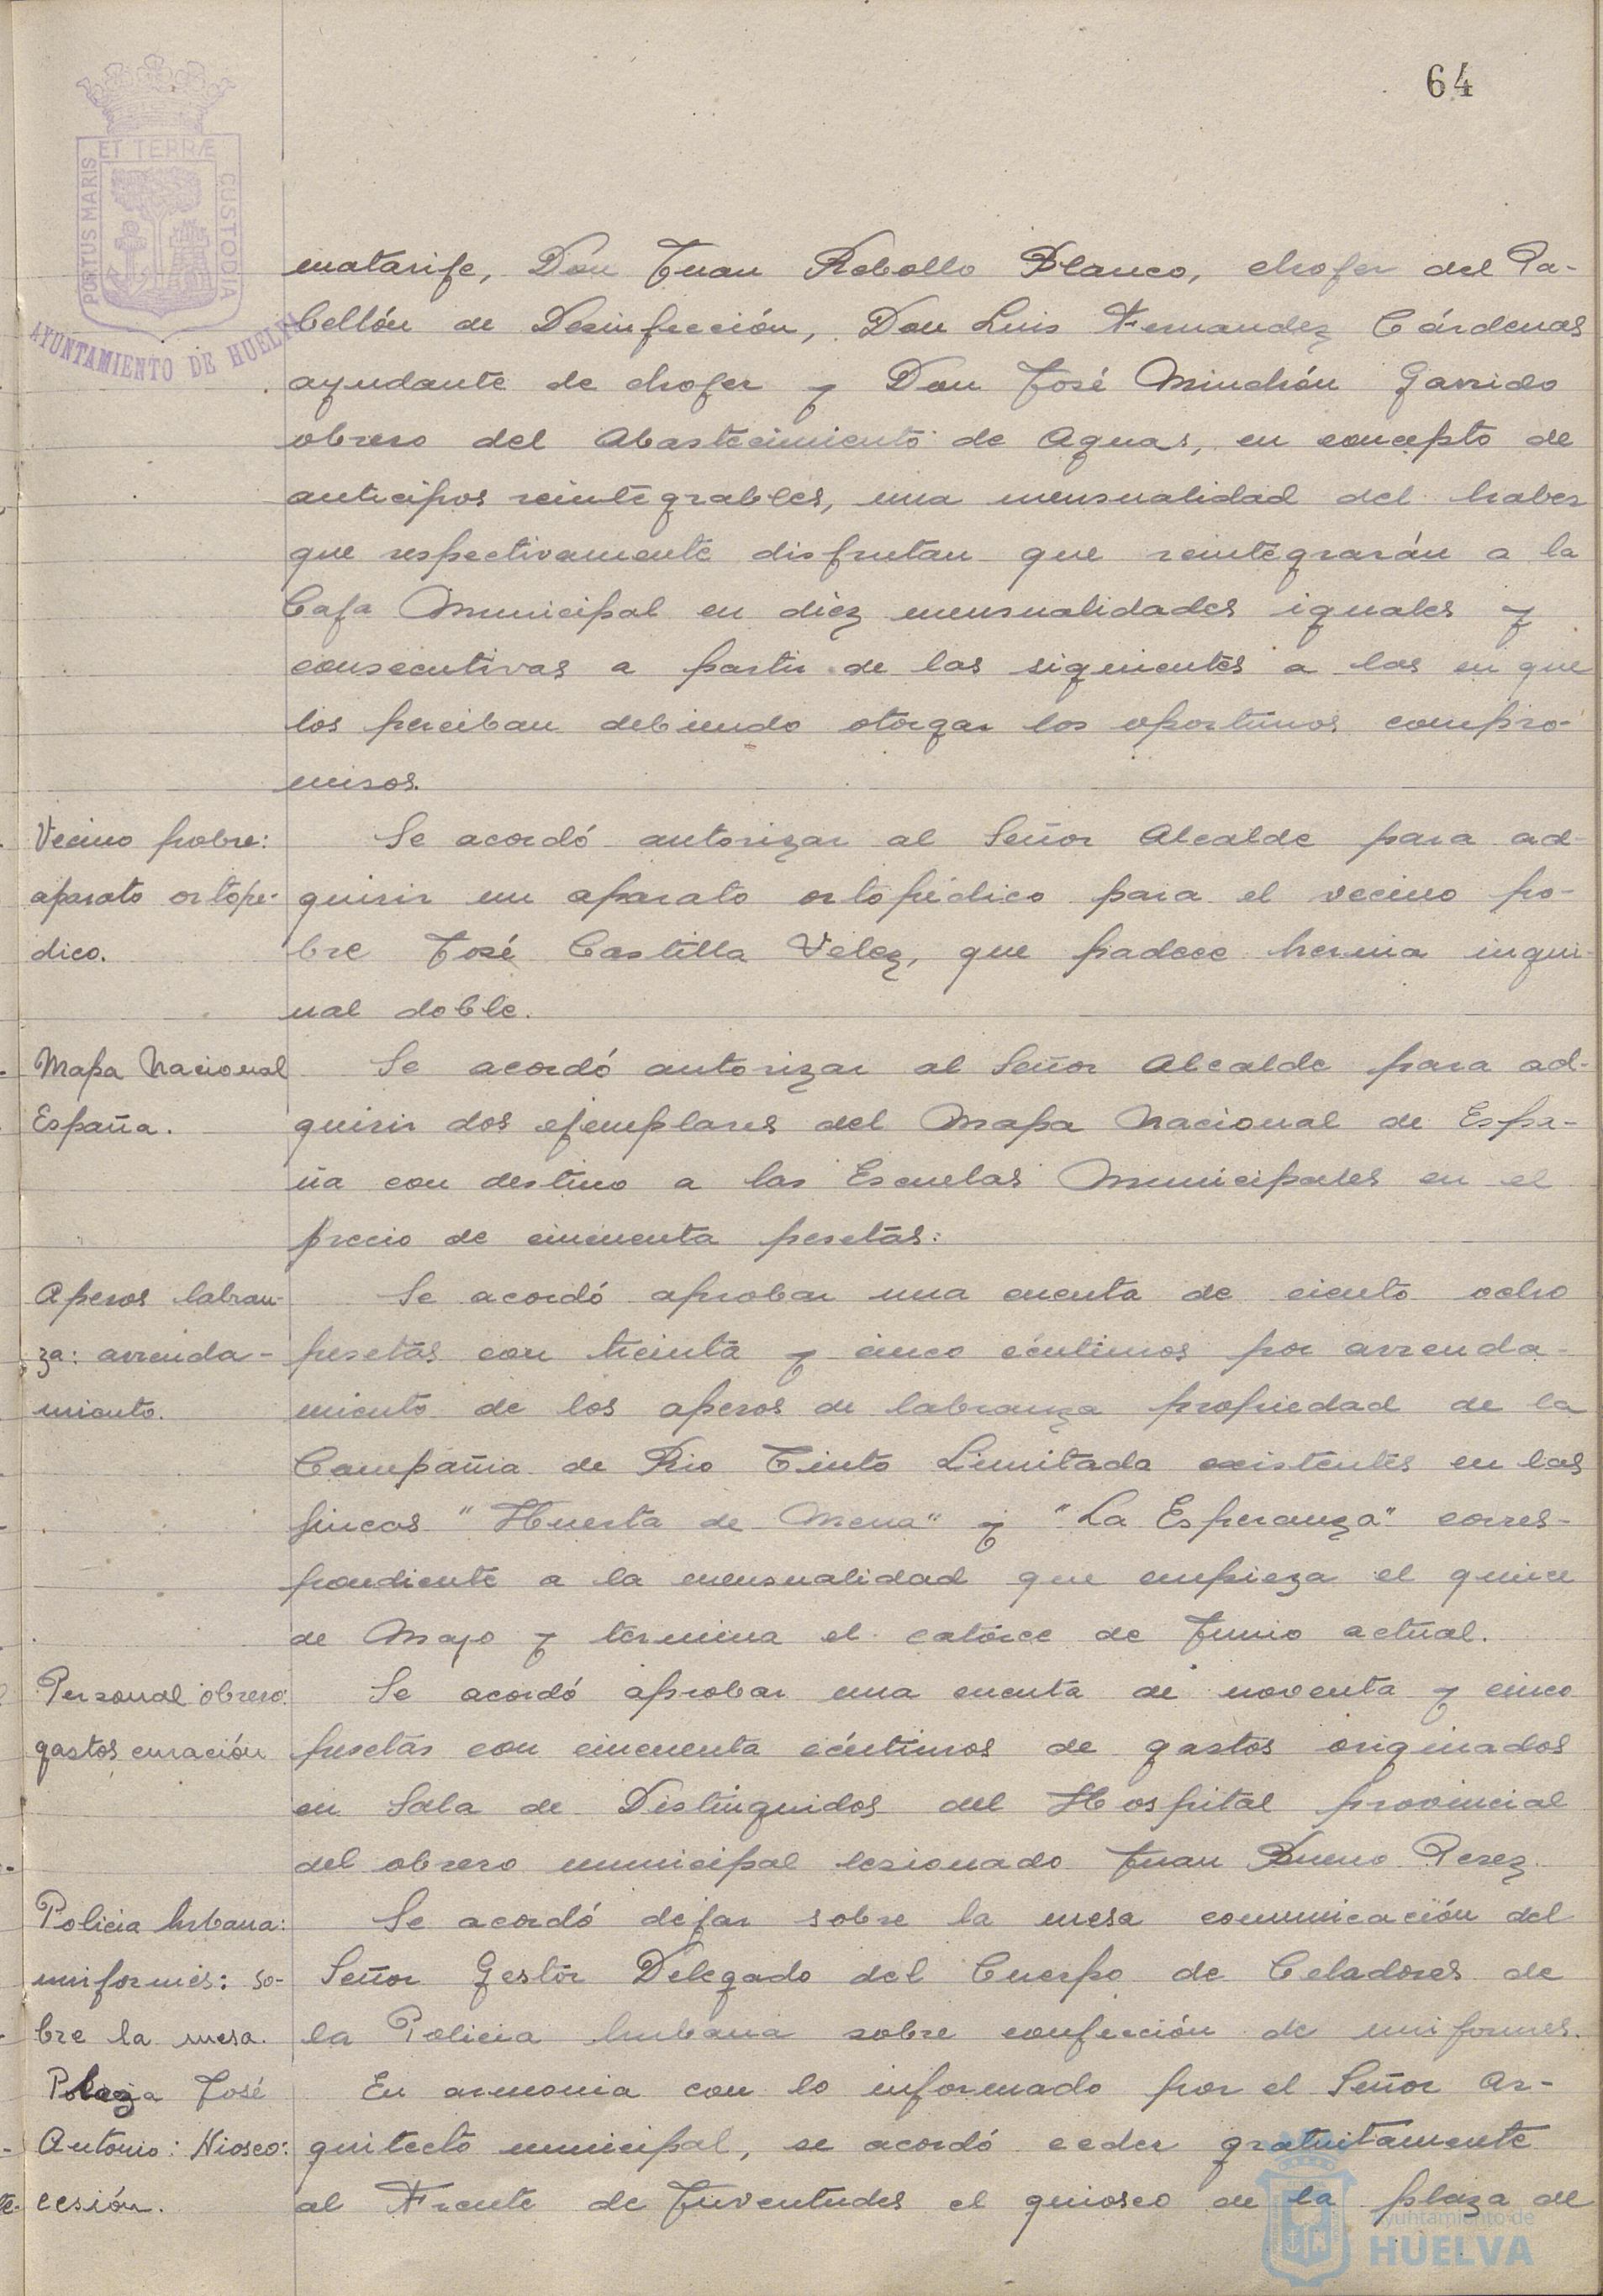 64
PORTUS MARIS ET TERRÆ CUSTODIA
AYUNTAMIENTO DE HUELVA
matarife, Don Juan Rebollo Blanco, chofer del Pa-
bellón de Desinfección, Don Luis Fernandez Cárdenas
ayudante de chofer y Don José Minchón Garrido
obrero del Abastecimiento de Aguas, en concepto de
anticipos reintegrables, una mensualidad del haber
que respectivamente disfrutan que reintegrarán a la
Caja Municipal en diez mensualidades iguales y
consecutivas a partir de las siguientes a las en que
los perciban debiendo otorgar los oportunos compro-
misos.
Vecino pobre:
aparato ortope-
dico.
Se acordó autorizar al Señor Alcalde para ad-
quirir un aparato ortopédico para el vecino po-
bre José Castilla Velez, que padece hernia ingui-
nal doble.
Mapa Nacional
España.
Se acordó autorizar al Señor Alcalde para ad-
quirir dos ejemplares del Mapa Nacional de Espa-
ña con destino a las Escuelas Municipales en el
precio de cincuenta pesetas.
Aperos labran-
za: arrenda-
miento.
Se acordó aprobar una cuenta de ciento ocho
pesetas con treinta y cinco céntimos por arrenda-
miento de los aperos de labranza propiedad de la
Compañia de Rio Tinto Limitada existentes en las
fincas "Huerta de Mena" y "La Esperanza" corres-
pondiente a la mensualidad que empieza el quince
de Mayo y termina el catorce de Junio actual.
Personal obrero:
gastos curación
Se acordó aprobar una cuenta de noventa y cinco
pesetas con cincuenta céntimos de gastos originados
en Sala de Distinguidos del Hospital provincial
del obrero municipal lesionado Juan Bueno Perez.
Policia Urbana:
uniformes: so-
bre la mesa.
Se acordó dejar sobre la mesa comunicación del
Señor Gestor Delegado del Cuerpo de Celadores de
la Policia Urbana sobre confección de uniformes.
Plaza José
Antonio: Kiosco:
cesión.
En armonia con lo informado por el Señor Ar-
quitecto municipal, se acordó ceder gratuitamente
al Frente de Juventudes el quiosco de la plaza de
Ayuntamiento de
HUELVA